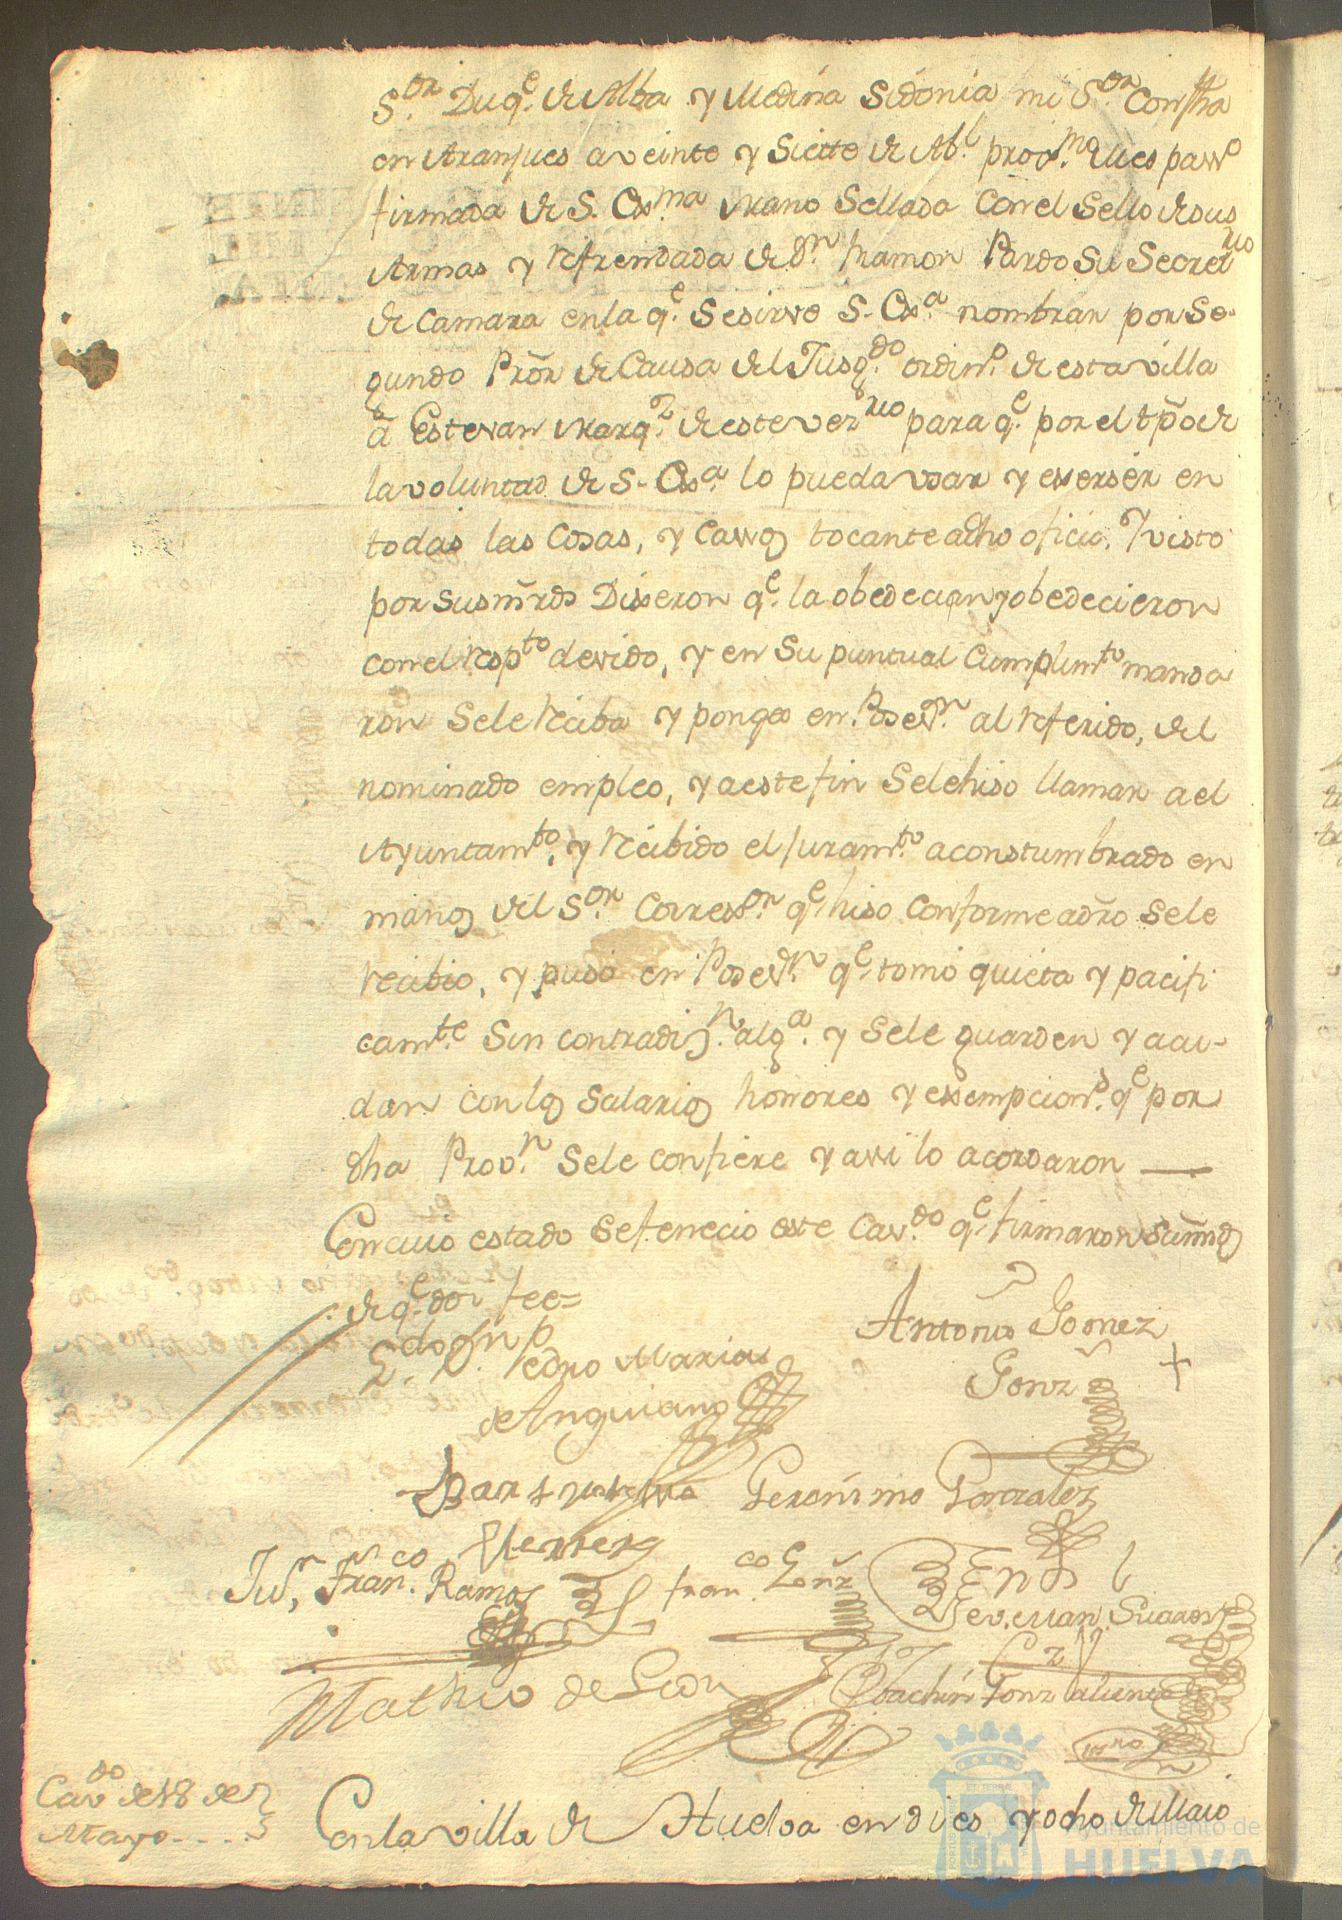 S.or Duq.e de Alba y Medina Sidonia mi S.or Con fha
en Aranjues a veinte y Siette de Ab.l prox.mo Mes pasſ.o
firmada de S. Ex.ma mano Sellada Con el Sello de sus
Armas y refrendada de D.n Ramon Pardo Su Secret.rio
de Camara en la q.e se sirve S. Ex.a nombrar por Se-
gundo Pror de Causa del Jusg.do ordin.o de esta villa
â Estevan Marq.z de este vez.rio para q.e por el tpo de
la voluntad de S. Ex.a lo pueda usar y exerser en
todas las Cosas, y Casſos tocante a dho oficio. Y visto
por sus mrds Dixeron q.e la obedecian y obedecieron
con el resp.to devido, y en Su puntual Cumplim.to manda
ron Se le reciba y ponga en Poses.n al referido, del
nominado empleo, y a este fin Se le hiso llamar a el
Ayuntam.to, y recibido el juram.to aconstumbrado en
manos del S.or Corresx.or q.e hiso conforme a dro se le
recibio, y puso en Poses.n q.e tomó quieta y pacifi
cam.te Sin contradiz.n alg.a y Se le guarden y acu-
dan con los Salarios honores y exsempcion.s q.e por
dha Prov.n Se le confiere y asſi lo acordaron
En cuio estado se fenecio este Cav.do q.e firmaron Sus mrds
de q.e doi fee=
L.do Dn Pedro Maria
de Anguiano
Antonio Gomez
Gonz
Geronimo Gonzalez
Ju.n Fran.co Ramos
Fran.co Gonz
Estevan Suarez
Mathio de Leon
Joachin Gonz
Cav.do de 18 de
Mayo....
En la villa de Huelva en dies y ocho de Maio
Ayuntamiento de
HUELVA